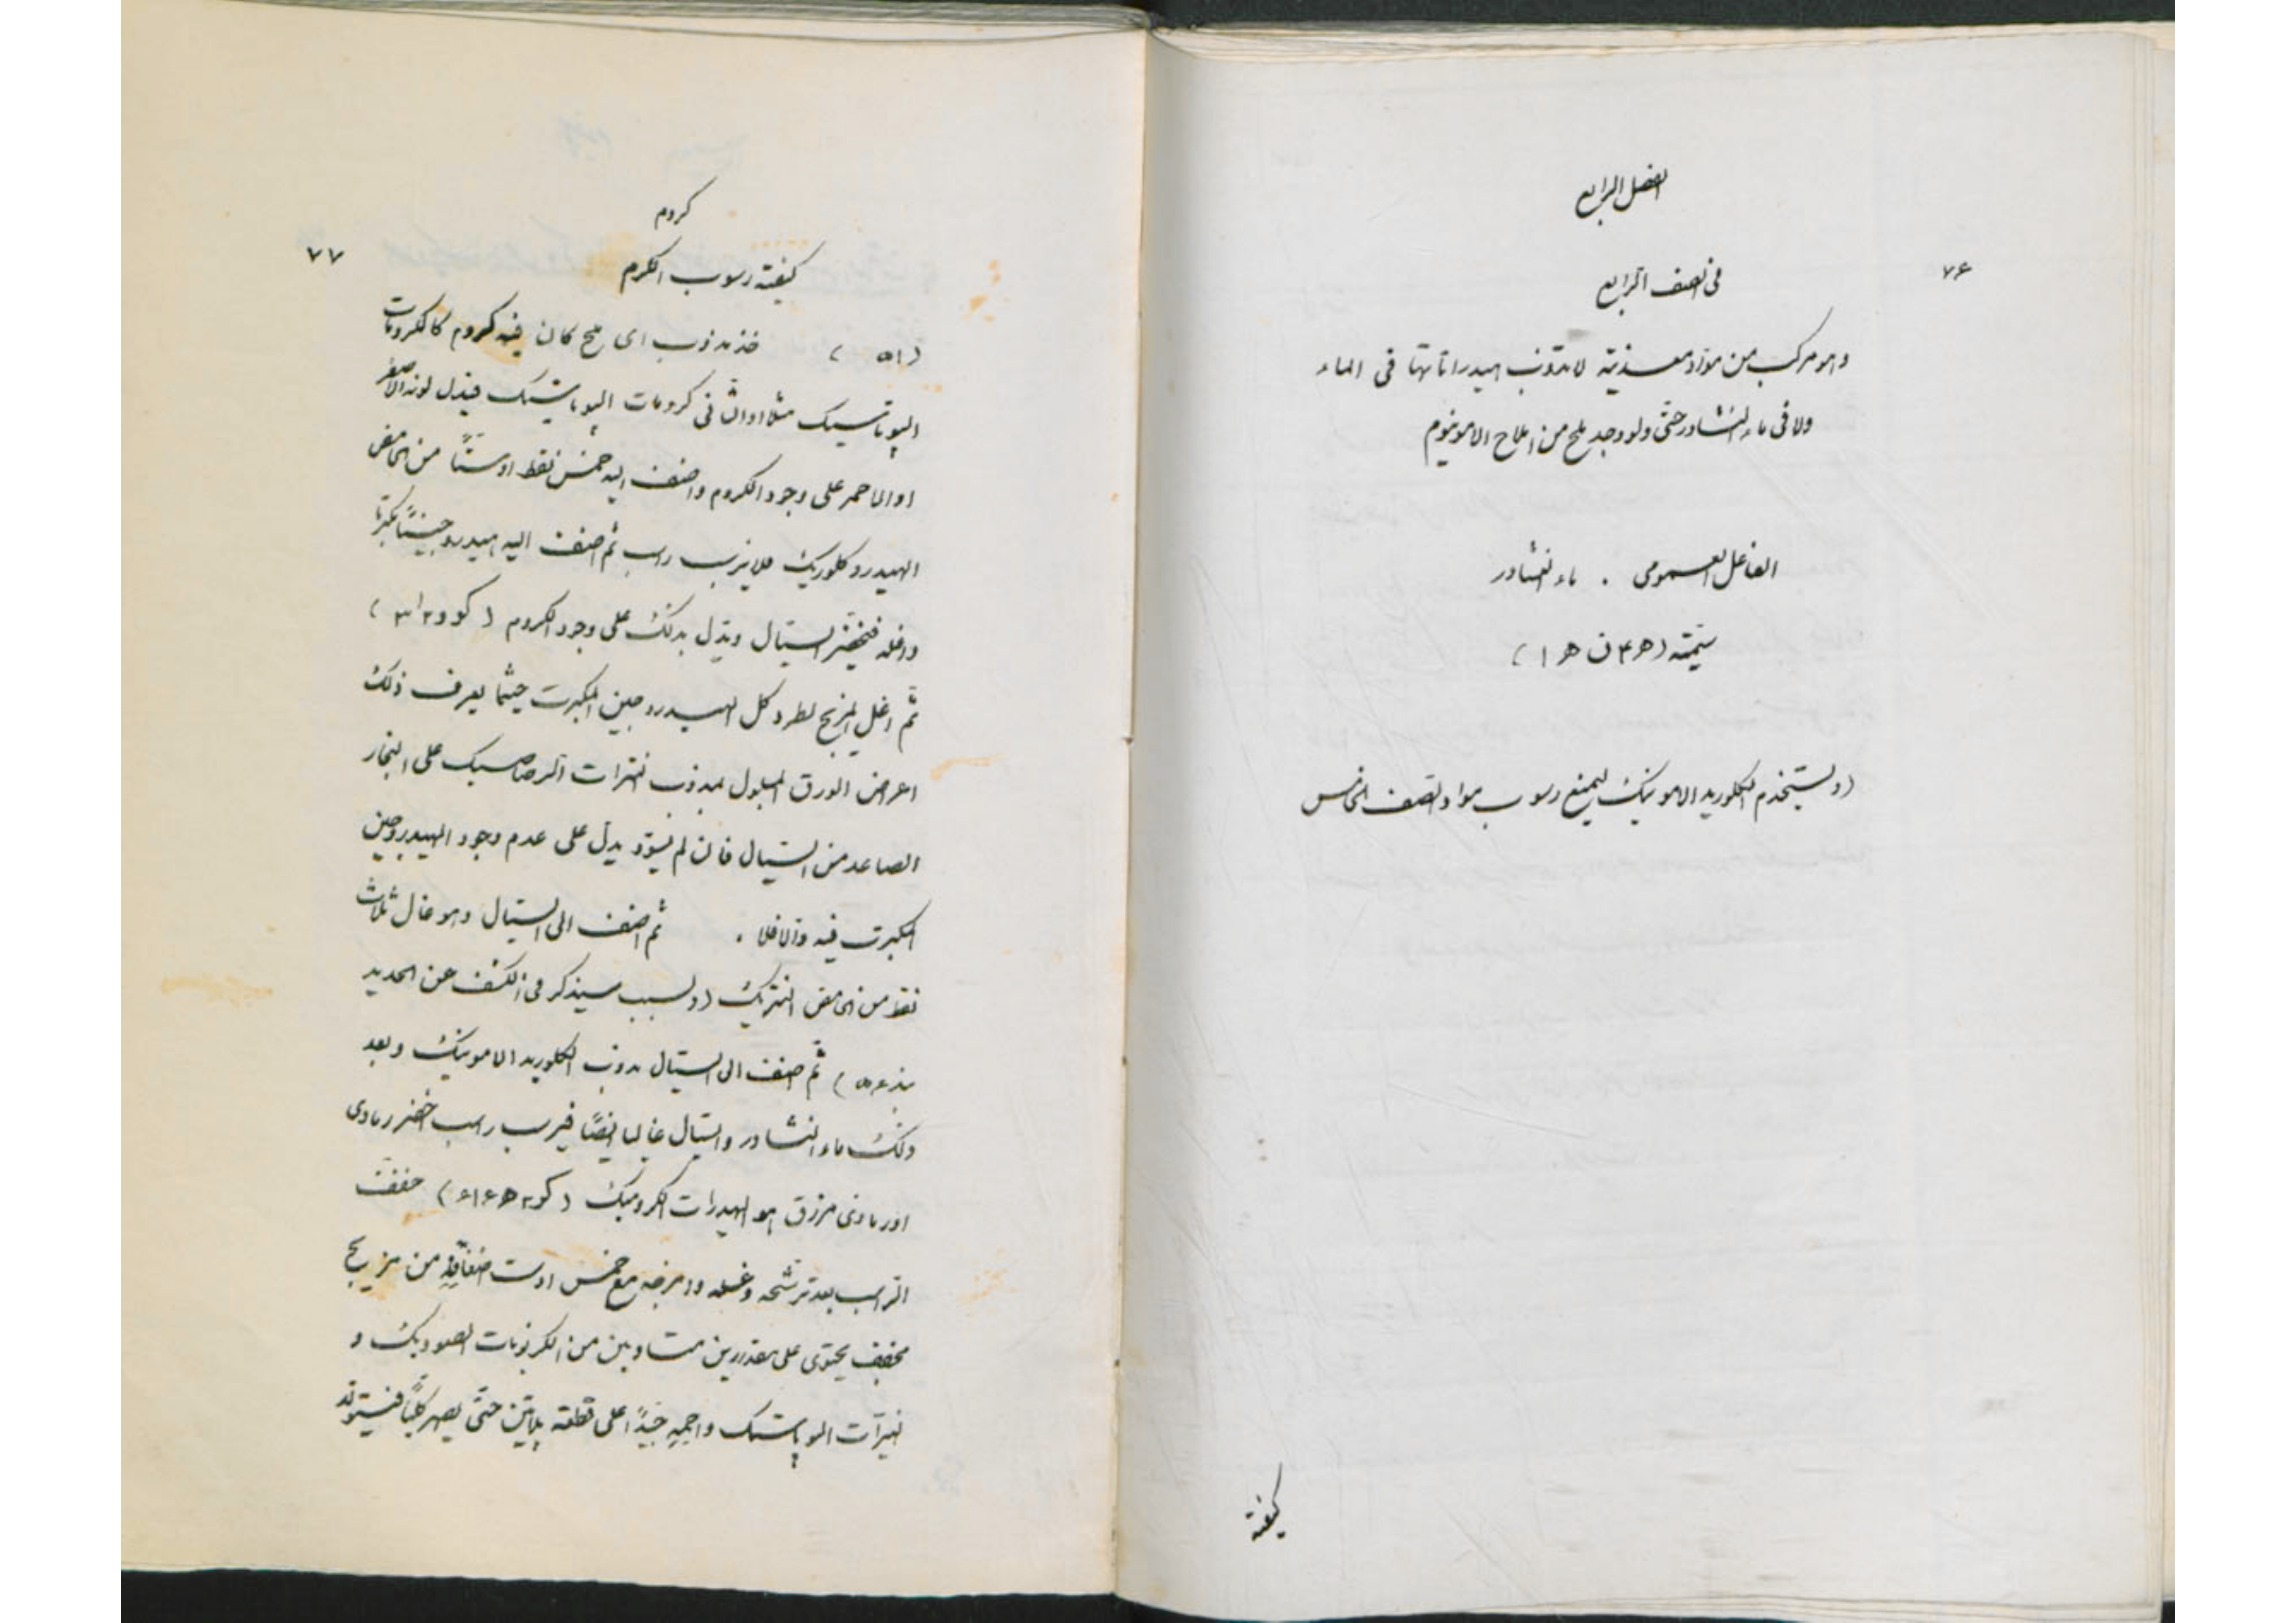 الفصل الرابع
٧۶
فی الصنف الرابع
وهو مرکب من مواد معدنیة لا تذوب هیدراتاتها فی الماء
ولا فی ماء النشادر حتی ولو وجد ملح من املاح الامونیوم
الفاعل العمومی . ماء النشادر
سیمته (ھ۴ ن ھ ا)
(ویستخدم الکلورید الامونیک لیمنع رسوب مواد الصنف الخامس
کیفیة
کروم
٧٧
کیفیة رسوب الکرم
(۵۱) خذ مذوب ای ملح کان فیه کروم کالکرومات
الپوتاسیک مثلا او الثانی کرومات الپوتاسیک فیدل لونه الاصفر
او الاحمر علی وجود الکروم واضف الیه خمس نقط او ستًا من الحامض
الهیدروکلوریک فلا یرسب راسب ثم اضف الیه هیدروجینًا مکبرتا
واغله فیخضر السیال ویدل بذلک علی وجود الکروم (کو و۲ ا۳)
ثم اغل المزیج لطرد کل الهیدروجین المکبرت حیثما یعرف ذلک
اعرض الورق المبلول بمذوب نترات الرصاصیک علی البخار
الصاعد من السیال فان لم یسوّد یدل علی عدم وجود الهیدروجین
المکبرت فیه والا فلا . ثم اضف الی السیال وهو غال ثلاث
نقط من الحامض النتریک (ولسبب سیذکر فی الکشف عن الحدید
بند ۵۶) ثم اضف الی السیال مذوب الکلورید الامونیک وبعد
ذلک ماء النشادر والسیال غالیا ایضًا فیرسب راسب اخضر رمادی
او رمادی مزرق هو الهیدرات الکرومیک (کو۲ ھ۶ ا۶) جفف
الراسب بعد ترشحه وغسله وامزجه مع خمس او ست اضعافه من مزیج
مجفف یحتوی علی مقدارین متساویین من الکربونات الصودیک و
نیترات الپوتاسیک واحمه جیدًا علی قطعة پلاتین حتی یصهر کلیًا فیستولد